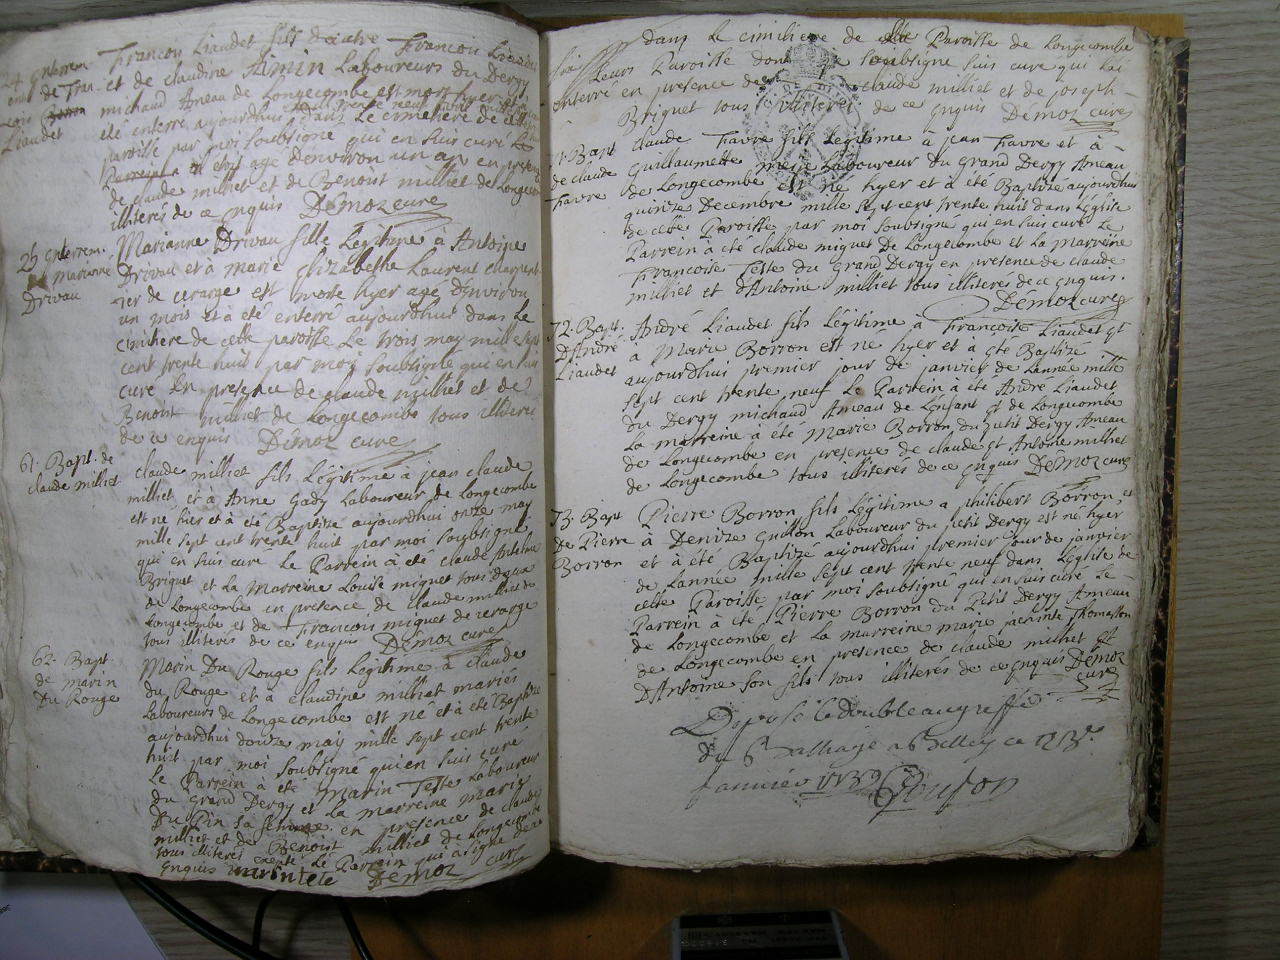 24 enterrem
ent de fran
cois
Liaudet
Francois Liaudet fils d'autre Francois Liaudet
et de claudine Aimin Laboureurs du Dergy
michaud Ameau de Longecombe est mort hyer et a
été enterré aujourdhui dans Le cimetiere de cette
paroisse par moi soubsigné qui en suis curé Le
Parrein a étoit agé d'environ un an en presence
de claude milliet et de Benoist milliet de Longecombe
illiterés de ce enquis Démoz curé
25 enterrem.
marianne
Drivau
Marianne Drivau fille Legitime à Antoine
Drivau et à marie Elizabethe Laurent charpent
ier de cerarge est morte hyer agé d'environ
un mois et à été enterré aujourdhui dans Le
cimitiere de cette paroisse Le trois may mille sept
cent trente huit par moy soubsigné qui en suis
curé En presence de claude milliet et de
Benoist milliet de Longecombe tous illiterés
de ce enquis Démoz curé
61. Bapt. de
claude milliet
claude milliet fils Légitime à jean claude
milliet et à Anne Gady Laboureur de Longecombe
est né hier et à été Baptizé aujourdhui onze may
mille sept cent trente huit par moi soubsigné
qui en suis curé Le Parrein à été claude Antelme
Briguet et La Marreine Louise miguet tous deux
de Longecombe en presence de claude milliet de
Longecombe et de francois miguet de cerarge
tous illiterés de ce enquis Démoz curé
62. Bapt
de marin
Du Rouge
Marin Du Rouge fils Legitime à claude
du Rouge et à claudine milliet mariés
Laboureurs de Longecombe est né et à été Baptizé
aujourdhui douze may mille sept cent trente
huit par moi soubsigné qui en suis curé
Le Parrein à été Marin Teste Laboureur
du grand Dergy et La marreine Marie
Du Pin sa femme en presence de claude
milliet et de Benoist milliet de Longecombe
tous illiterés excepté Le Parrein qui à signé de ce
enquis marin tete Démoz curé
dans Le cimitiere de cette Paroisse de Longecombe
Leurs Paroisse dont Le soubsigné suis curé qui L'ai
enterré en presence de claude milliet et de joseph
Briguet tous illiterés de ce enquis Démoz curé
71. Bapt
de claude
favre
claude Favre fils Légitime à jean Favre et à
Guillaumette meije Laboureur du grand Dergy Ameau
de Longecombe est né hyer et à été Baptizé aujourdhui
quinze Decembre mille sept cent trente huit dans L'Eglise
de cette Paroisse par moi soubsigné qui en suis curé Le
Parrein à été claude miguet de Longecombe et La marreine
Francoise Teste du grand Dergy en presence de claude
milliet et d'Antoine milliet tous illiterés de ce enquis.
Démoz curé
72. Bapt.
D'André
Liaudet
André Liaudet fils Légitime à Francois Liaudet et
à Marie Borron est né hyer et à été Baptizé
aujourdhui premier jour de janvier de Lannée mille
sept cent trente neuf Le Parrein à été André Liaudet
du Dergy michaud Ameau de Lenfant et de Longecombe
La marreine à été Marie Borron du petit Dergy Ameau
de Longecombe en presence de claude et Antoine milliet
de Longecombe tous illiterés de ce enquis Démoz curé
73. Bapt
De Pierre
Borron
Pierre Borron fils Légitime à philibert Borron et
à Denize Guillon Laboureur du petit Dergy est né hyer
et à été Baptizé aujourdhui premier jour de janvier
de Lannée mille sept cent trente neuf dans L'Eglise de
cette Paroisse par moi soubsigné qui en suis curé Le
Parrein à été Pierre Borron du Petit Dergy Ameau
de Longecombe et La marreine marie jacinte Thomasson
de Longecombe en presence de claude milliet et
D'Antoine son fils tous illiterés de ce enquis Démoz
curé
Deposé le double au greffe
du Balliage a Belley ce
janvier 1739